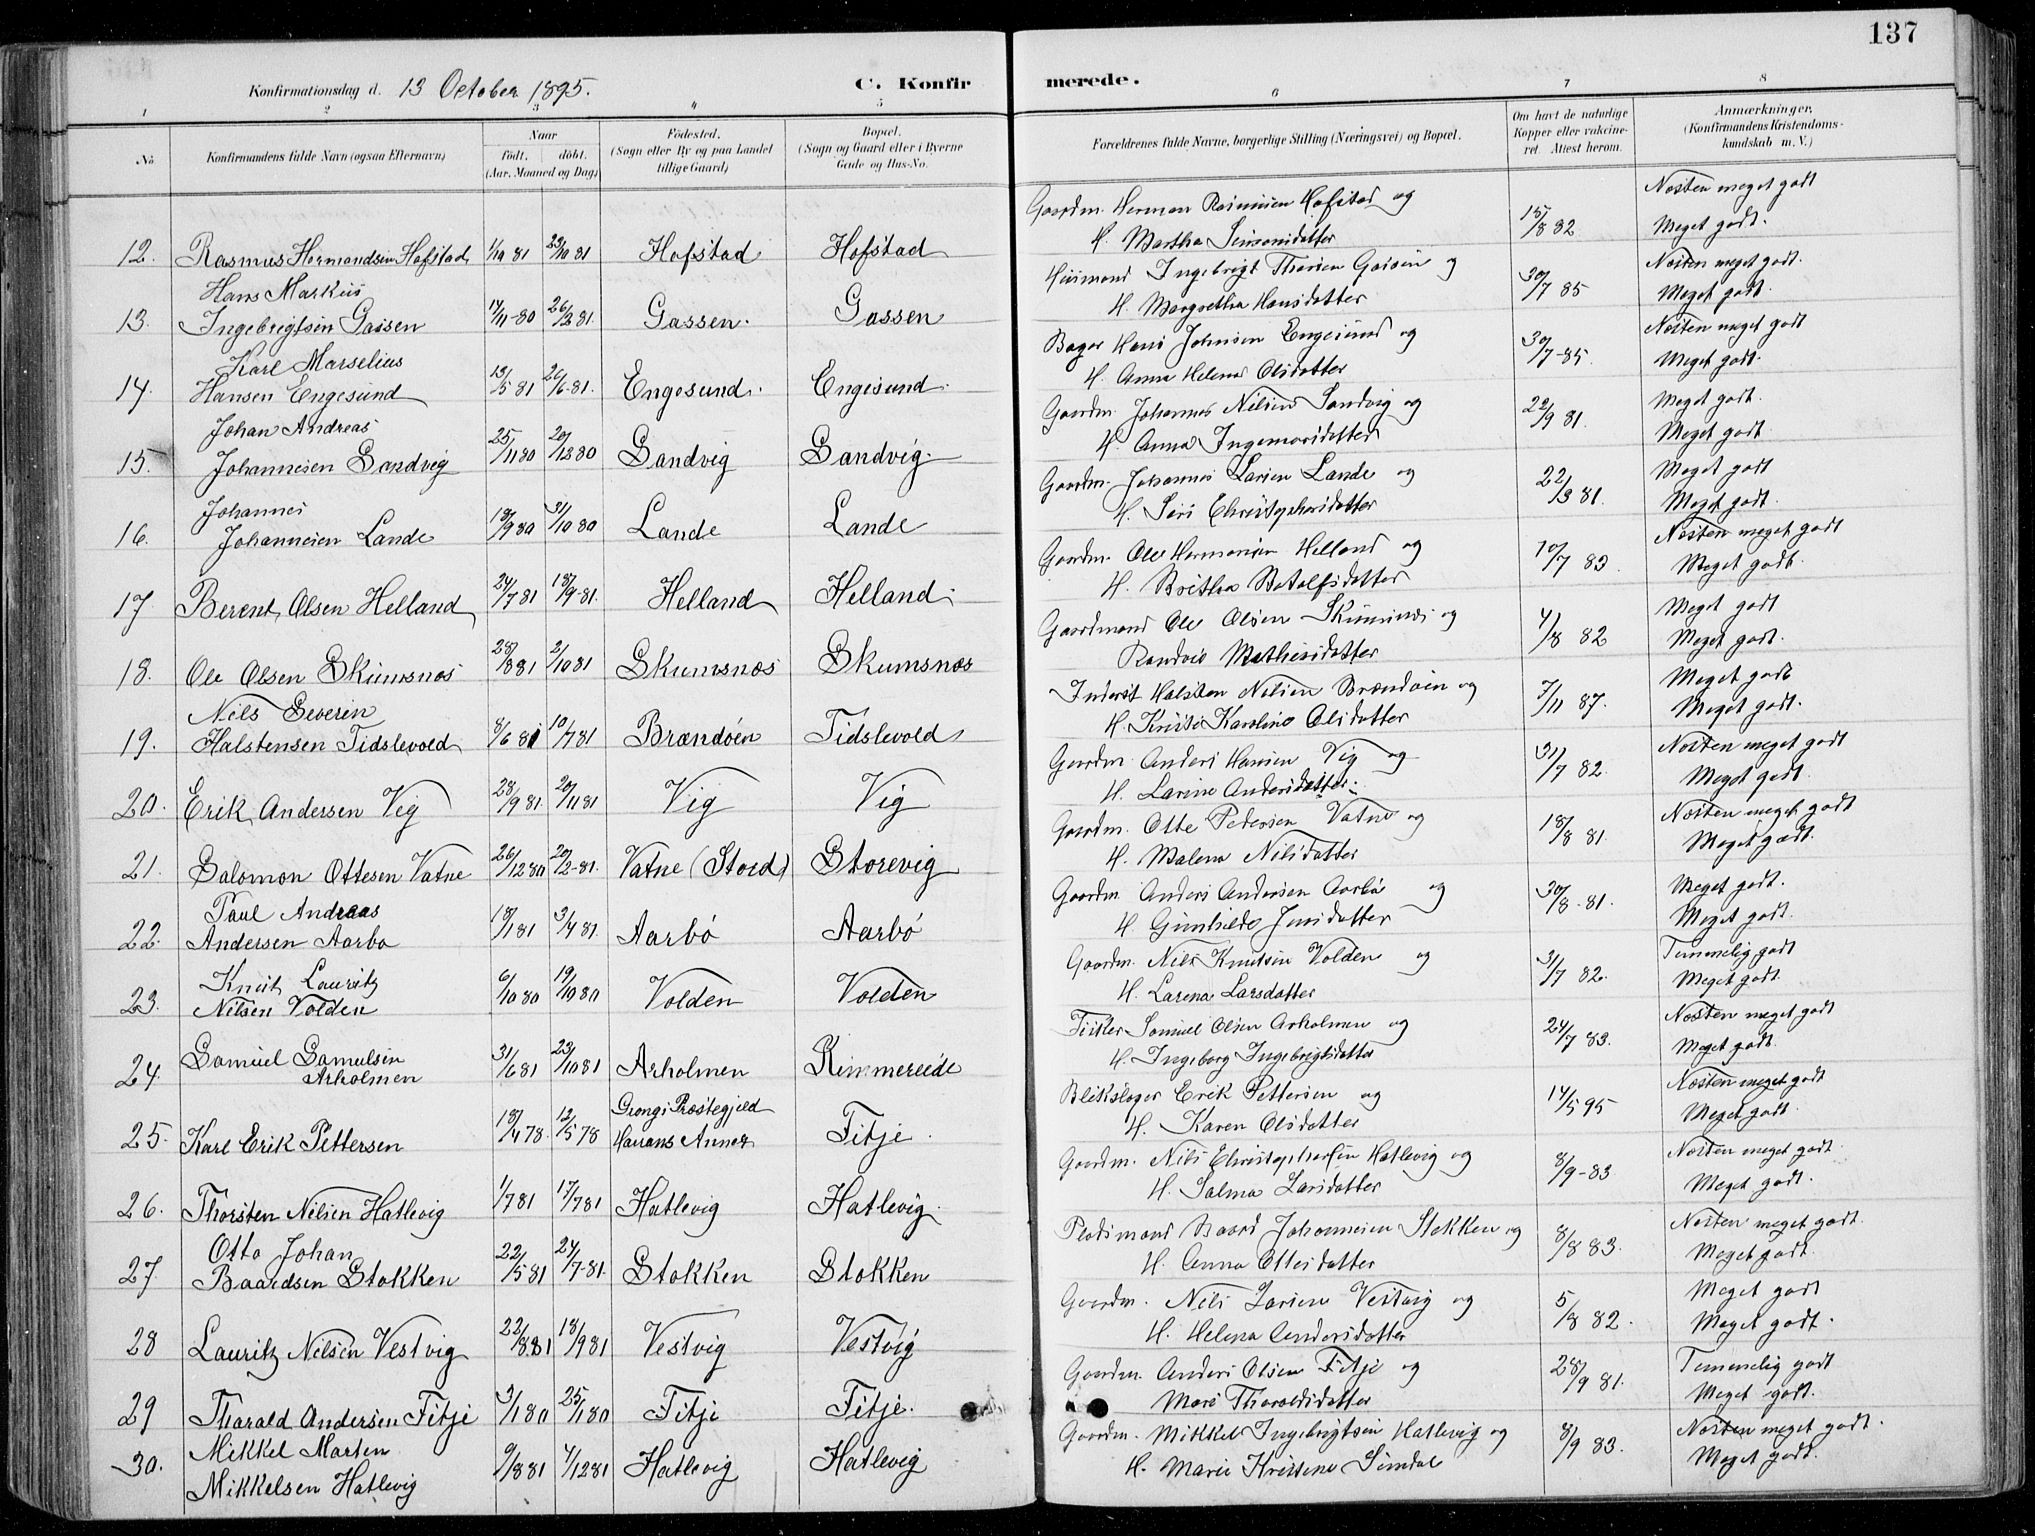 137
Konfirmationsdag d. 13 October 1895.
C. Konfirmerede.
1 2 3 4 5 6 7 8
No
Konfirmandens fulde Navn (ogsaa Efternavn)
Naar
født. døbt.
(Aar, Maaned og Dag)
Födested.
(Sogn eller By og paa Landet
tillige Gaard)
Bopæl.
(Sogn og Gaard eller i Byerne
Gade og Hus-No.
Forældrenes fulde Navne, borgerlige Stilling (Næringsvei) og Bopæl.
Om havt de naturlige
Kopper eller vakcine-
ret Attest herom.
Anmærkninger,
(Konfirmandens Kristendoms-
kundskab m. V.)
Gaardm. Herman Rasmusen Hofstad og Nesten meget godt
12. Rasmus Hermandsen Hofstad 23/10 81 Hofstad Hofstad H. Martha Simonsdatter 15/8 82 Meget godt.
Hans Markus Husmand Ingebrigt Gassen og Nesten meget godt.
13. Ingebrigtsen Gassen 17/11-80 26/3 81. Gassen. Gassen H. Margretha Hansdatter 30/7 85 Meget godt.
Karl Marselius Hans Johnsen Engesund og Nesten meget godt
14. Hansen Engesund 13/5 81 26/6-81. Engesund. Engesund. H. Anna Helena Olsdatter 30/7-85. Meget godt.
Johan Andreas Gaardm. Johannes Nilsen Sandvig og Meget godt.
15. Johannesen Sandvig 25/11 80 20/12 80 Sandvig Sandvig. H. Anna Ingemarsdatter 22/9 81. Meget godt.
Johannes Gaardm. Johannes Larsen Lande og Meget godt
16. Johannesen Lande 18/9 80 31/10 80 Lande Lande H. Siri Christophersdatter 22/3 81. Meget godt.
Gaardm. Ole Hermansen Helland og Nesten meget godt
17 Berent Olsen Helland 24/7 81 18/9-81. Helland Helland. H. Britha Botolfsdatter 10/7 83. Meget godt.
Gaardmand Ole Olsen Skumsnes og Meget godt
18. Ole Olsen Skumsnes 28/8 81 2/10 81 Skumsnes Skumsnes Randvei Mathiasdatter 4/8 82 Meget godt.
Nils Severin Inderst Halsten Nilsen Brændøen og Meget godt
19. Halstensen Tidslevold 8/6 81 10/7 81 Brændøen Tidslevold H. Karoline Olsdatter 7/11 87. Meget godt.
Gaardm. Anders Hansen Vig og Nesten meget godt
20. Erik Andersen Vig 28/9 81. 20/11 81 Vig Vig H. Larine Andersdatter. 31/7 82. Meget godt.
Gaardm. Otte Pedersen Vatne og Nesten meget godt
21. Salomon Ottesen Vatne 26/12 80 20/2-81. Vatne (Stord) Storevig H. Malena Nilsdatter 18/8 81. Meget godt.
Paul Andreas Gaardm. Anders Andersen Aarbø og Meget godt.
22. Andersen Aarbo 18/1 81 3/4 81. Aarbó Aarbó H. Gunhilde Jensdatter 30/8-81. Meget godt.
Knut Lauritz Gaardm. Nils Knutsen Volden og Temmelig godt
23. Nilsen Volden 6/10 80 19/10 80 Volden Volden H. Larena Larsdatter 31/7 82. Meget godt.
Samuel Samulsen Fisker Samuel Olsen Arholmen og Nesten meget godt
24. Arholmen 31/6 81 23/10 81 Arholmen Rimmereide H. Ingeborg Ingebrigtsdatter 24/7 83. Meget godt.
Grongs Præstegjeld Blikslager Erik Pettersen og Nesten meget godt
25. Karl Erik Pettersen 18/4 78. 12/5 78 Harrans Annex Fitje. H. Karen Olsdatter 14/5 95 Meget godt.
Gaardm. Nils Christophersen Hatlevig og Nesten meget godt
26. Thorsten Nilsen Hatlevig 1/7 81 17/7 81 Hatlevig Hatlevig. H. Salma Larsdatter 8/9-83 Meget godt.
Otto Johan Pladsmand Baard Johannesen Stokken og Nesten meget godt.
27. Baardsen Stokken 22/5 81 24/7-81. Stokken Stokken H. Anna Ottesdatter 8/8 83. Meget godt.
Gaardm. Nils Larsen Vestvig og Meget godt
28 Lauritz Nilsen Vestvig 22/8 81 18/9 81 Vestvig Vestvig H. Helena Andersdatter 5/8 82. Meget godt.
Gaardm. Anders Olsen Fitje og Temmelig godt
29 Tharald Andersen Fitje 3/1 80 25/1 80 Fitje Fitje. Mari Tharaldsdatter 28/9 81. Meget godt.
Mikkel Marten Gaardm. Mikkel Ingebrigtsen Hatlevig og Nesten meget godt.
30. Mikkelsen Hatlevig 9/8 81 4/12 81 Hatlevig Hatlevig H. Marie Kristine Simdal 8/9 83. Meget godt.